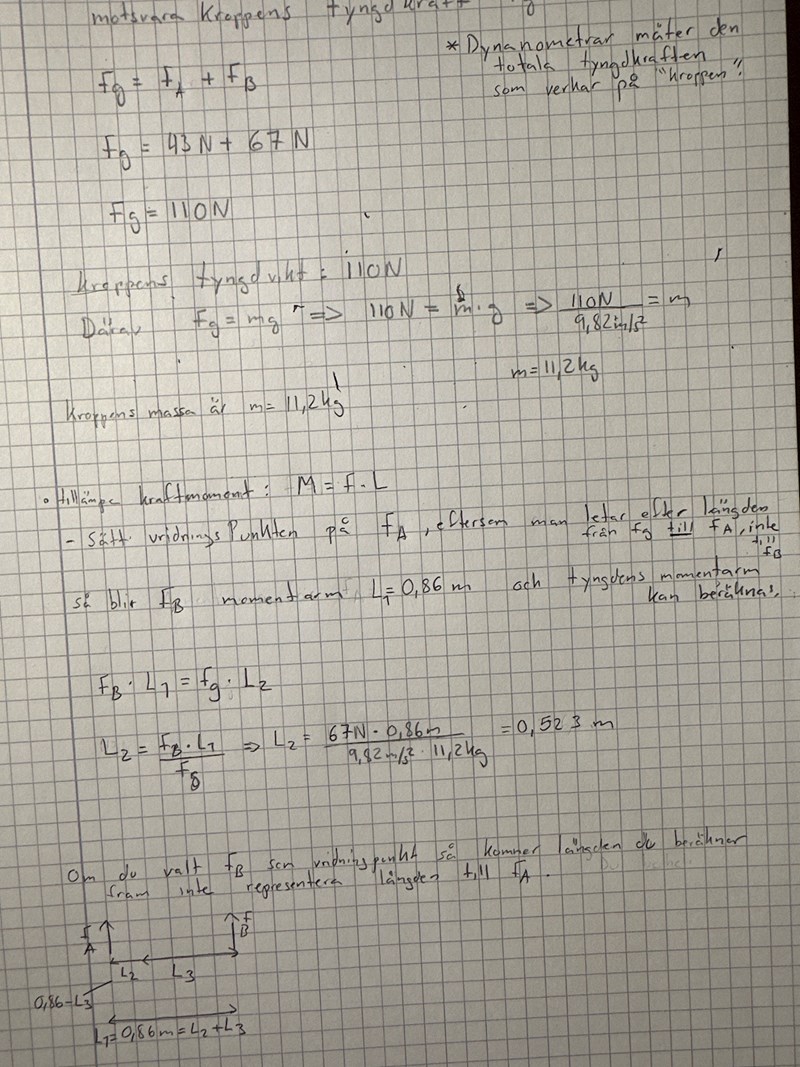 motsvara kroppens tyngdkraft
* Dynanometrar mäter den
totala tyngdkraften
som verkar på "kroppen".
Fg = FA + FB
Fg = 43N + 67N
Fg = 110N
kroppens tyngdvikt: 110N
Därav Fg = mg => 110N = m · g => 110N / 9,82m/s² = m
m = 11,2kg
kroppens massa är m = 11,2kg
• tillämpa kraftmoment: M = F · L
- Sätt vridningsPunkten på FA, eftersom man letar efter längden
från Fg till FA, inte
till
FB
så blir FB momentarm L1 = 0,86 m och tyngdens momentarm
kan beräknas.
FB · L1 = Fg · L2
L2 = FB · L1 / Fg => L2 = 67N · 0,86m / 9,82m/s² · 11,2kg = 0,523 m
Om du valt FB som vridningspunkt så kommer längden du beräknar
fram inte representera längden till FA.
FA
FB
L2 L3
0,86-L3
L1 = 0,86m = L2 + L3